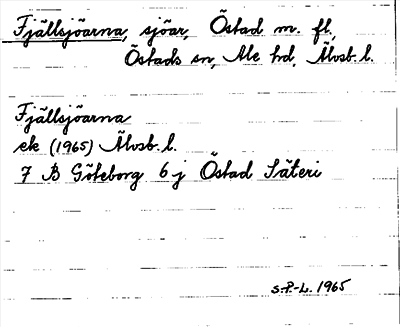 Fjällsjöarna, sjöar, Östad m. fl.,
Östads sn, Ale hd, Älvsb. l.
Fjällsjöarna
ek (1965) Älvsb. l.
7 B Göteborg 6 j Östad Säteri
S.-P.-L. 1965